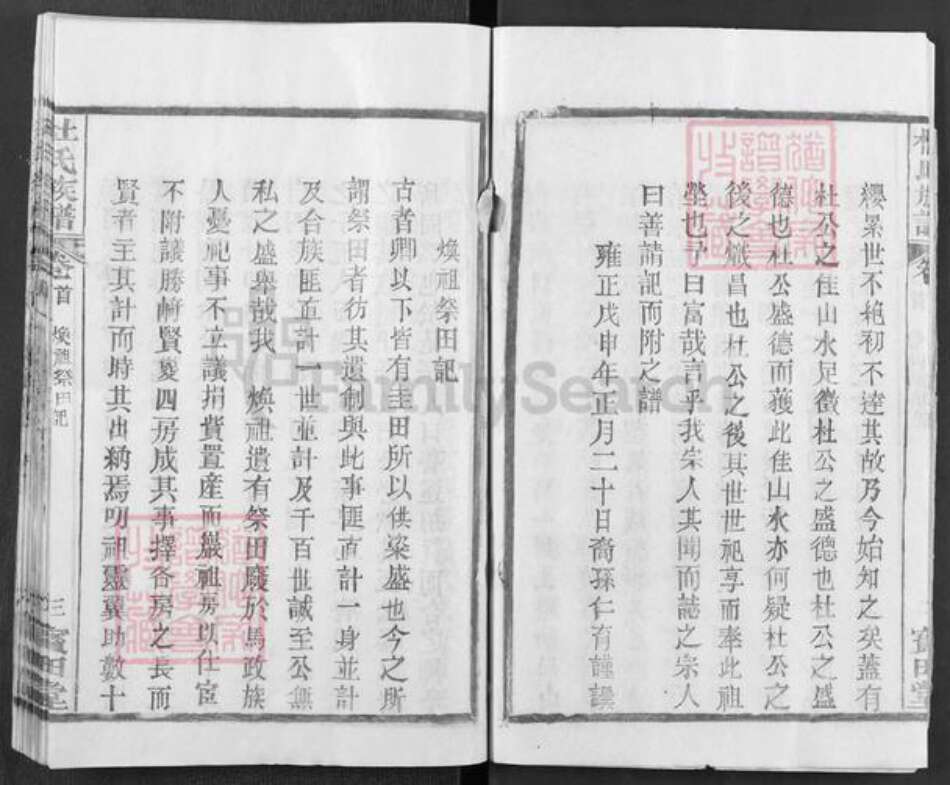 杜氏族譜 卷首
纓累世不絶初不達其故乃今始知之矣蓋有
杜公之佳山水足徵杜公之盛德也杜公之盛
德也杜公盛德而獲此佳山水亦何疑杜公之
後之熾昌也杜公之後其世世祀享而奉此祖
塋也予曰富哉言乎我宗人其聞而誌之宗人
曰善請記而附之譜
雍正戊申年正月二十日裔孫仁有謹譔
寶田堂
煥祖祭田記
古者卿以下皆有圭田所以供粢盛也今之所
謂祭田者彷其遺制與此事匪直計一身並計
及合族匪直計一世並計及千百世誠至公無
私之盛舉哉我 煥祖遺有祭田廢於馬政族
人憂祀事不立議捐貲置產而巖祖房以仕宦
不附議勝嶹賢夔四房成其事擇各房之長而
賢者主其計而時其出納焉叨祖靈翼助數十
杜氏族譜 卷首 煥祖祭田記 三 寶田堂
FamilySearch